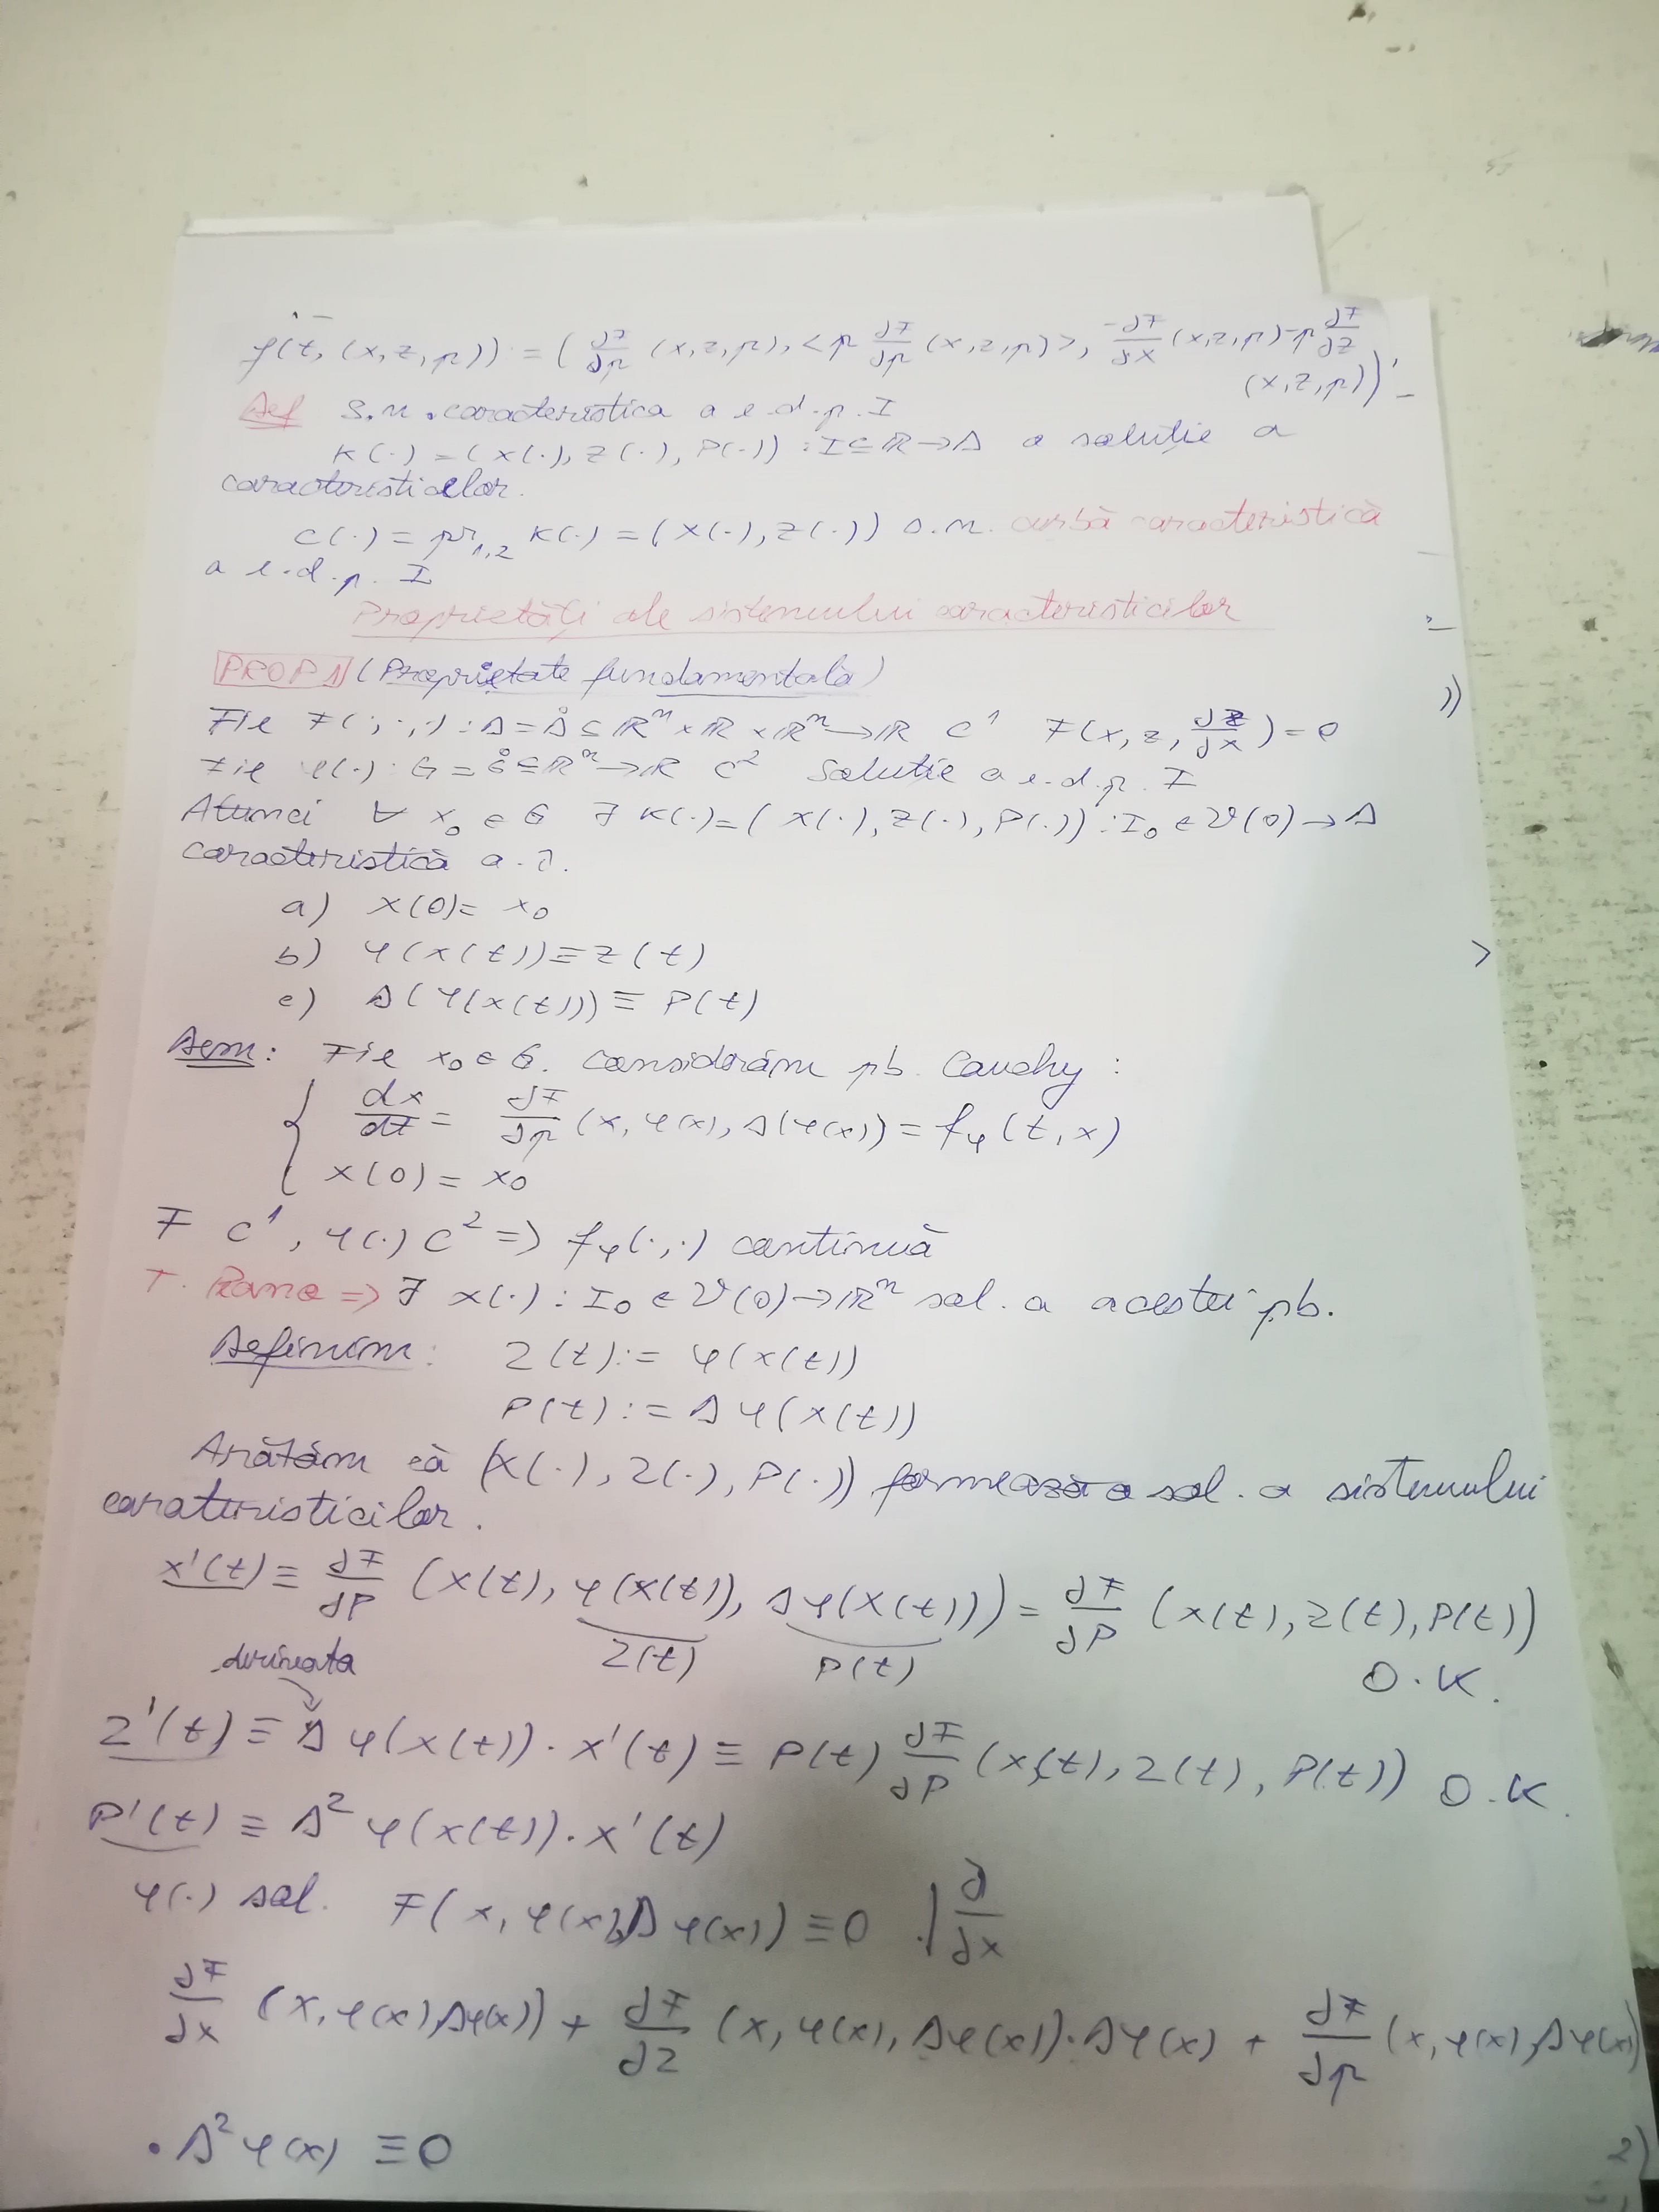 f(t, (x, z, p)) = ( ∂F/∂p (x, z, p), <p ∂F/∂p (x, z, p)>, -∂F/∂x (x, z, p) - p ∂F/∂z
(x, z, p))
Def S.n. caracteristica a e.d.p. I
K(·) = (X(·), Z(·), P(·)) : I ⊆ ℝ → D o soluție a
caracteristicilor.
C(·) = pr₁,₂ K(·) = (X(·), Z(·)) s.n. curbă caracteristică
a e.d.p. I
Proprietăți ale sistemului caracteristicilor
PROP 1 (Proprietate fundamentală)
Fie F(·,·,·) : D = D̊ ⊆ ℝⁿ × ℝ × ℝⁿ → ℝ C¹ F(x, z, ∂z/∂x) = 0
Fie φ(·) : G = G̊ ⊆ ℝⁿ → ℝ C² soluție a e.d.p. I
Atunci ∀ x₀ ∈ G ∃ K(·) = (X(·), Z(·), P(·)) : I₀ ∈ V(0) → D
caracteristică a.î.
a) X(0) = x₀
b) φ(X(t)) ≡ Z(t)
c) D(φ(X(t))) ≡ P(t)
Dem: Fie x₀ ∈ G. Considerăm pb. Cauchy :
{ dx/dt = ∂F/∂p (x, φ(x), D(φ(x)) = f_φ (t, x)
x(0) = x₀
F C¹, φ(·) C² => f_φ(·,·) continuă
T. Peano => ∃ x(·) : I₀ ∈ V(0) → ℝⁿ sol. a acestei pb.
Definim : Z(t) := φ(X(t))
P(t) := D φ(X(t))
Arătăm că (X(·), Z(·), P(·)) formează o sol. a sistemului
caracteristicilor.
X'(t) ≡ ∂F/∂P (X(t), φ(X(t)), Dφ(X(t))) = ∂F/∂P (X(t), Z(t), P(t))
Z(t) P(t) O.K.
derivata
Z'(t) ≡ D φ(X(t)) · X'(t) ≡ P(t) ∂F/∂P (X(t), Z(t), P(t)) O.K.
P'(t) ≡ D² φ(X(t)) · X'(t)
φ(·) sol. F(x, φ(x), D φ(x)) ≡ 0 | ∂/∂x
∂F/∂x (x, φ(x), Dφ(x)) + ∂F/∂z (x, φ(x), Dφ(x)) · Dφ(x) + ∂F/∂p (x, φ(x), Dφ(x))
· D² φ(x) ≡ 0
2)